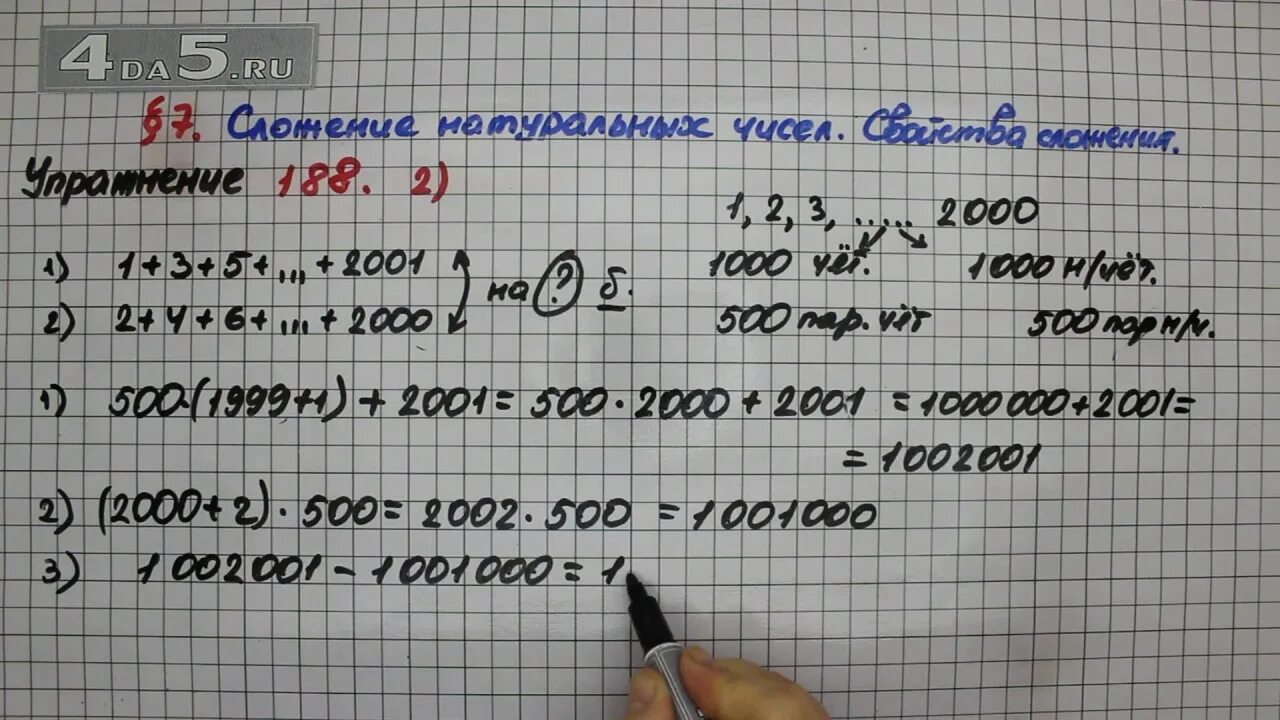 4DA5.RU
§7. Сложение натуральных чисел. Свойства сложения.
Упражнение 188. 2)
1, 2, 3, ...... 2000
1000 чёт. 1000 н/чёт.
500 пар. чёт 500 пар н/ч.
1) 1+3+5+...+2001
2) 2+4+6+...+2000
на ? б.
1) 500·(1999+1)+2001=500·2000+2001=1000000+2001=
=1002001
2) (2000+2)·500=2002·500=1001000
3) 1002001-1001000=1